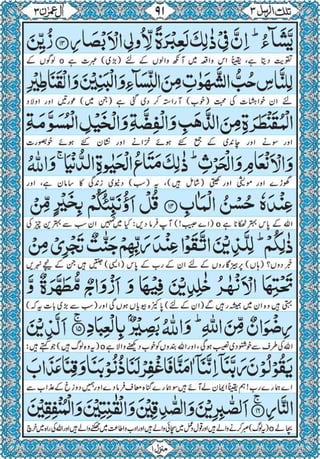 تلك الرسل ٣ ٩١ آل عمرٰن ٣
يَّشَآءُ ؕ اِنَّ فِيْ ذٰلِكَ لَعِبْرَةً لِّاُولِي الْاَبْصَارِ ۝۱۳ زُيِّنَ
تقویت دیتا ہے، یقیناً اس واقعہ میں آنکھ والوں کے لئے (بڑی) عبرت ہے ۝ لوگوں کے
لِلنَّاسِ حُبُّ الشَّهَوٰتِ مِنَ النِّسَآءِ وَالْبَنِيْنَ وَالْقَنَاطِيْرِ
لئے ان خواہشات کی محبت (خوب) آراستہ کر دی گئی ہے (جن میں) عورتیں اور اولاد
الْمُقَنْطَرَةِ مِنَ الذَّهَبِ وَالْفِضَّةِ وَالْخَيْلِ الْمُسَوَّمَةِ
اور سونے اور چاندی کے جمع کئے ہوئے خزانے اور نشان کئے ہوئے خوبصورت
وَالْاَنْعَامِ وَالْحَرْثِ ؕ ذٰلِكَ مَتَاعُ الْحَيٰوةِ الدُّنْيَا ۚ وَاللّٰهُ
گھوڑے اور مویشی اور کھیتی (شامل ہیں)، یہ (سب) دنیوی زندگی کا سامان ہے، اور
عِنْدَهٗ حُسْنُ الْمَاٰبِ ۝۱۴ قُلْ اَؤُنَبِّئُكُمْ بِخَيْرٍ مِّنْ
اللہ کے پاس بہتر ٹھکانا ہے ۝ (اے حبیب!) آپ فرما دیں: کیا میں تمہیں ان سب سے بہترین چیز کی
ذٰلِكُمْ ؕ لِلَّذِيْنَ اتَّقَوْا عِنْدَ رَبِّهِمْ جَنّٰتٌ تَجْرِيْ مِنْ
خبر دوں؟ (ہاں) پرہیزگاروں کے لئے ان کے رب کے پاس (ایسی) جنتیں ہیں جن کے نیچے نہریں
تَحْتِهَا الْاَنْهٰرُ خٰلِدِيْنَ فِيْهَا وَ اَزْوَاجٌ مُّطَهَّرَةٌ وَّ
بہتی ہیں وہ ان میں ہمیشہ رہیں گے (ان کے لئے) پاکیزہ بیویاں ہوں گی اور (سب سے بڑی بات یہ کہ)
رِضْوَانٌ مِّنَ اللّٰهِ ؕ وَاللّٰهُ بَصِيْرٌۢ بِالْعِبَادِ ۝۱۵ اَلَّذِيْنَ
اللہ کی طرف سے خوشنودی نصیب ہوگی، اور اللہ بندوں کو خوب دیکھنے والا ہے ۝ (یہ وہ لوگ ہیں) جو کہتے ہیں:
يَقُوْلُوْنَ رَبَّنَاۤ اِنَّنَاۤ اٰمَنَّا فَاغْفِرْ لَنَا ذُنُوْبَنَا وَقِنَا عَذَابَ
اے ہمارے رب! ہم یقیناً ایمان لے آئے ہیں سو ہمارے گناہ معاف فرما دے اور ہمیں دوزخ کے عذاب سے
النَّارِ ۝۱۶ اَلصّٰبِرِيْنَ وَالصّٰدِقِيْنَ وَالْقٰنِتِيْنَ وَالْمُنْفِقِيْنَ
بچا لے ۝ (یہ لوگ) صبر کرنے والے ہیں اور قول و عمل میں سچائی والے ہیں اور ادب و اطاعت میں جھکنے والے ہیں اور اللہ کی راہ میں خرچ
منزل